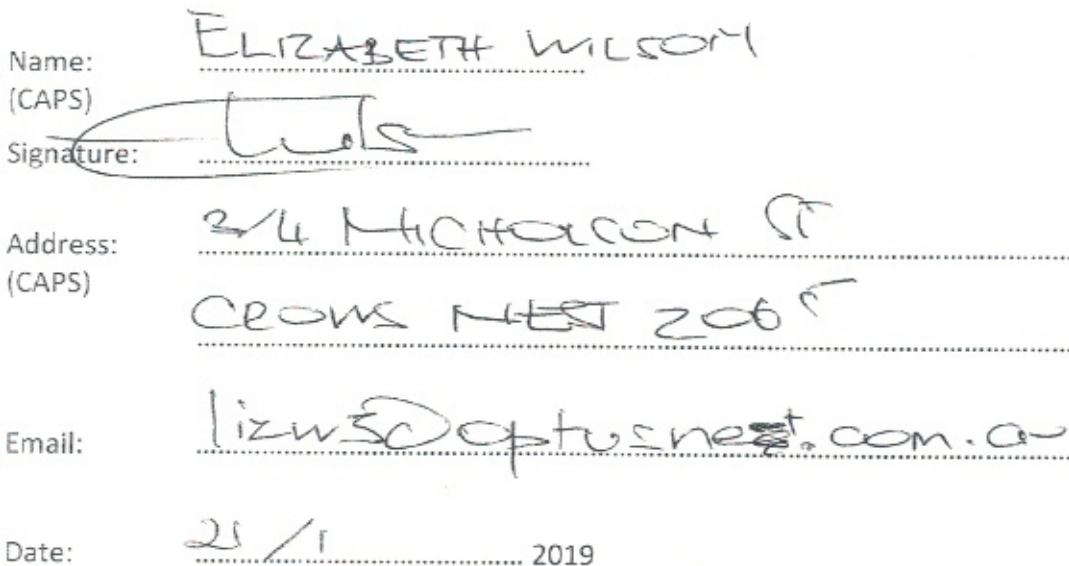 Name: ELIZABETH WILSON
(CAPS)
Signature:
Address: 3/4 NICHOLSON ST
(CAPS)
CROWS NEST 2065
Email: lizw3@optusnet.com.au
Date: 21/1 2019